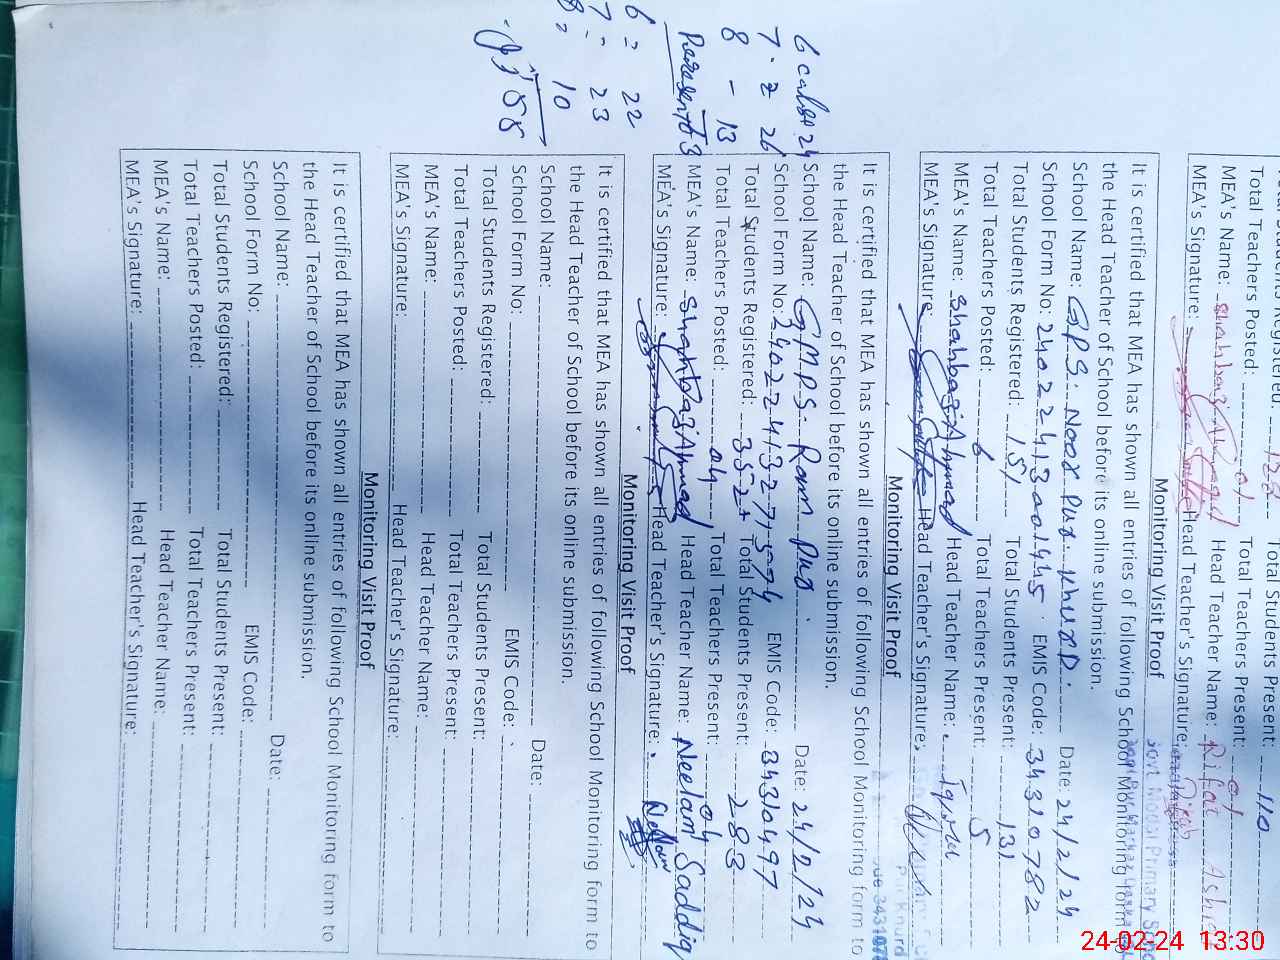 Total Teachers Posted: 01 Total Teachers Present: 01
MEA's Name: Shahbaz Ahmad Head Teacher Name: Rifat
MEA's Signature: Head Teacher's Signature:
Monitoring Visit Proof
It is certified that MEA has shown all entries of following School Monitoring form to
the Head Teacher of School before its online submission.
School Name: G.P.S. Noor Pur Khurd. Date: 24/2/24
School Form No: EMIS Code: 34310782
Total Students Registered: 151 Total Students Present: 131
Total Teachers Posted: 6 Total Teachers Present: 5
MEA's Name: Shahbaz Ahmad Head Teacher Name:
MEA's Signature: Head Teacher's Signature:
Monitoring Visit Proof
It is certified that MEA has shown all entries of following School Monitoring form to
the Head Teacher of School before its online submission.
School Name: G.M.P.S. Ram Pur Date: 24/2/24
School Form No: EMIS Code: 34310497
Total Students Registered: 352 Total Students Present: 283
Total Teachers Posted: 04 Total Teachers Present: 04
MEA's Name: Shahbaz Ahmad Head Teacher Name: Neelam Saddiq
MEA's Signature: Head Teacher's Signature: Neelam
24
7 = 26
8 - 13
Present
6 = 22
7 = 23
8 = 10
55
Monitoring Visit Proof
It is certified that MEA has shown all entries of following School Monitoring form to
the Head Teacher of School before its online submission.
School Name: Date:
School Form No: EMIS Code:
Total Students Registered: Total Students Present:
Total Teachers Posted: Total Teachers Present:
MEA's Name: Head Teacher Name:
MEA's Signature: Head Teacher's Signature:
Monitoring Visit Proof
It is certified that MEA has shown all entries of following School Monitoring form to
the Head Teacher of School before its online submission.
School Name: Date:
School Form No: EMIS Code:
Total Students Registered: Total Students Present:
Total Teachers Posted: Total Teachers Present:
MEA's Name: Head Teacher Name:
MEA's Signature: Head Teacher's Signature:
24-02-24 13:30